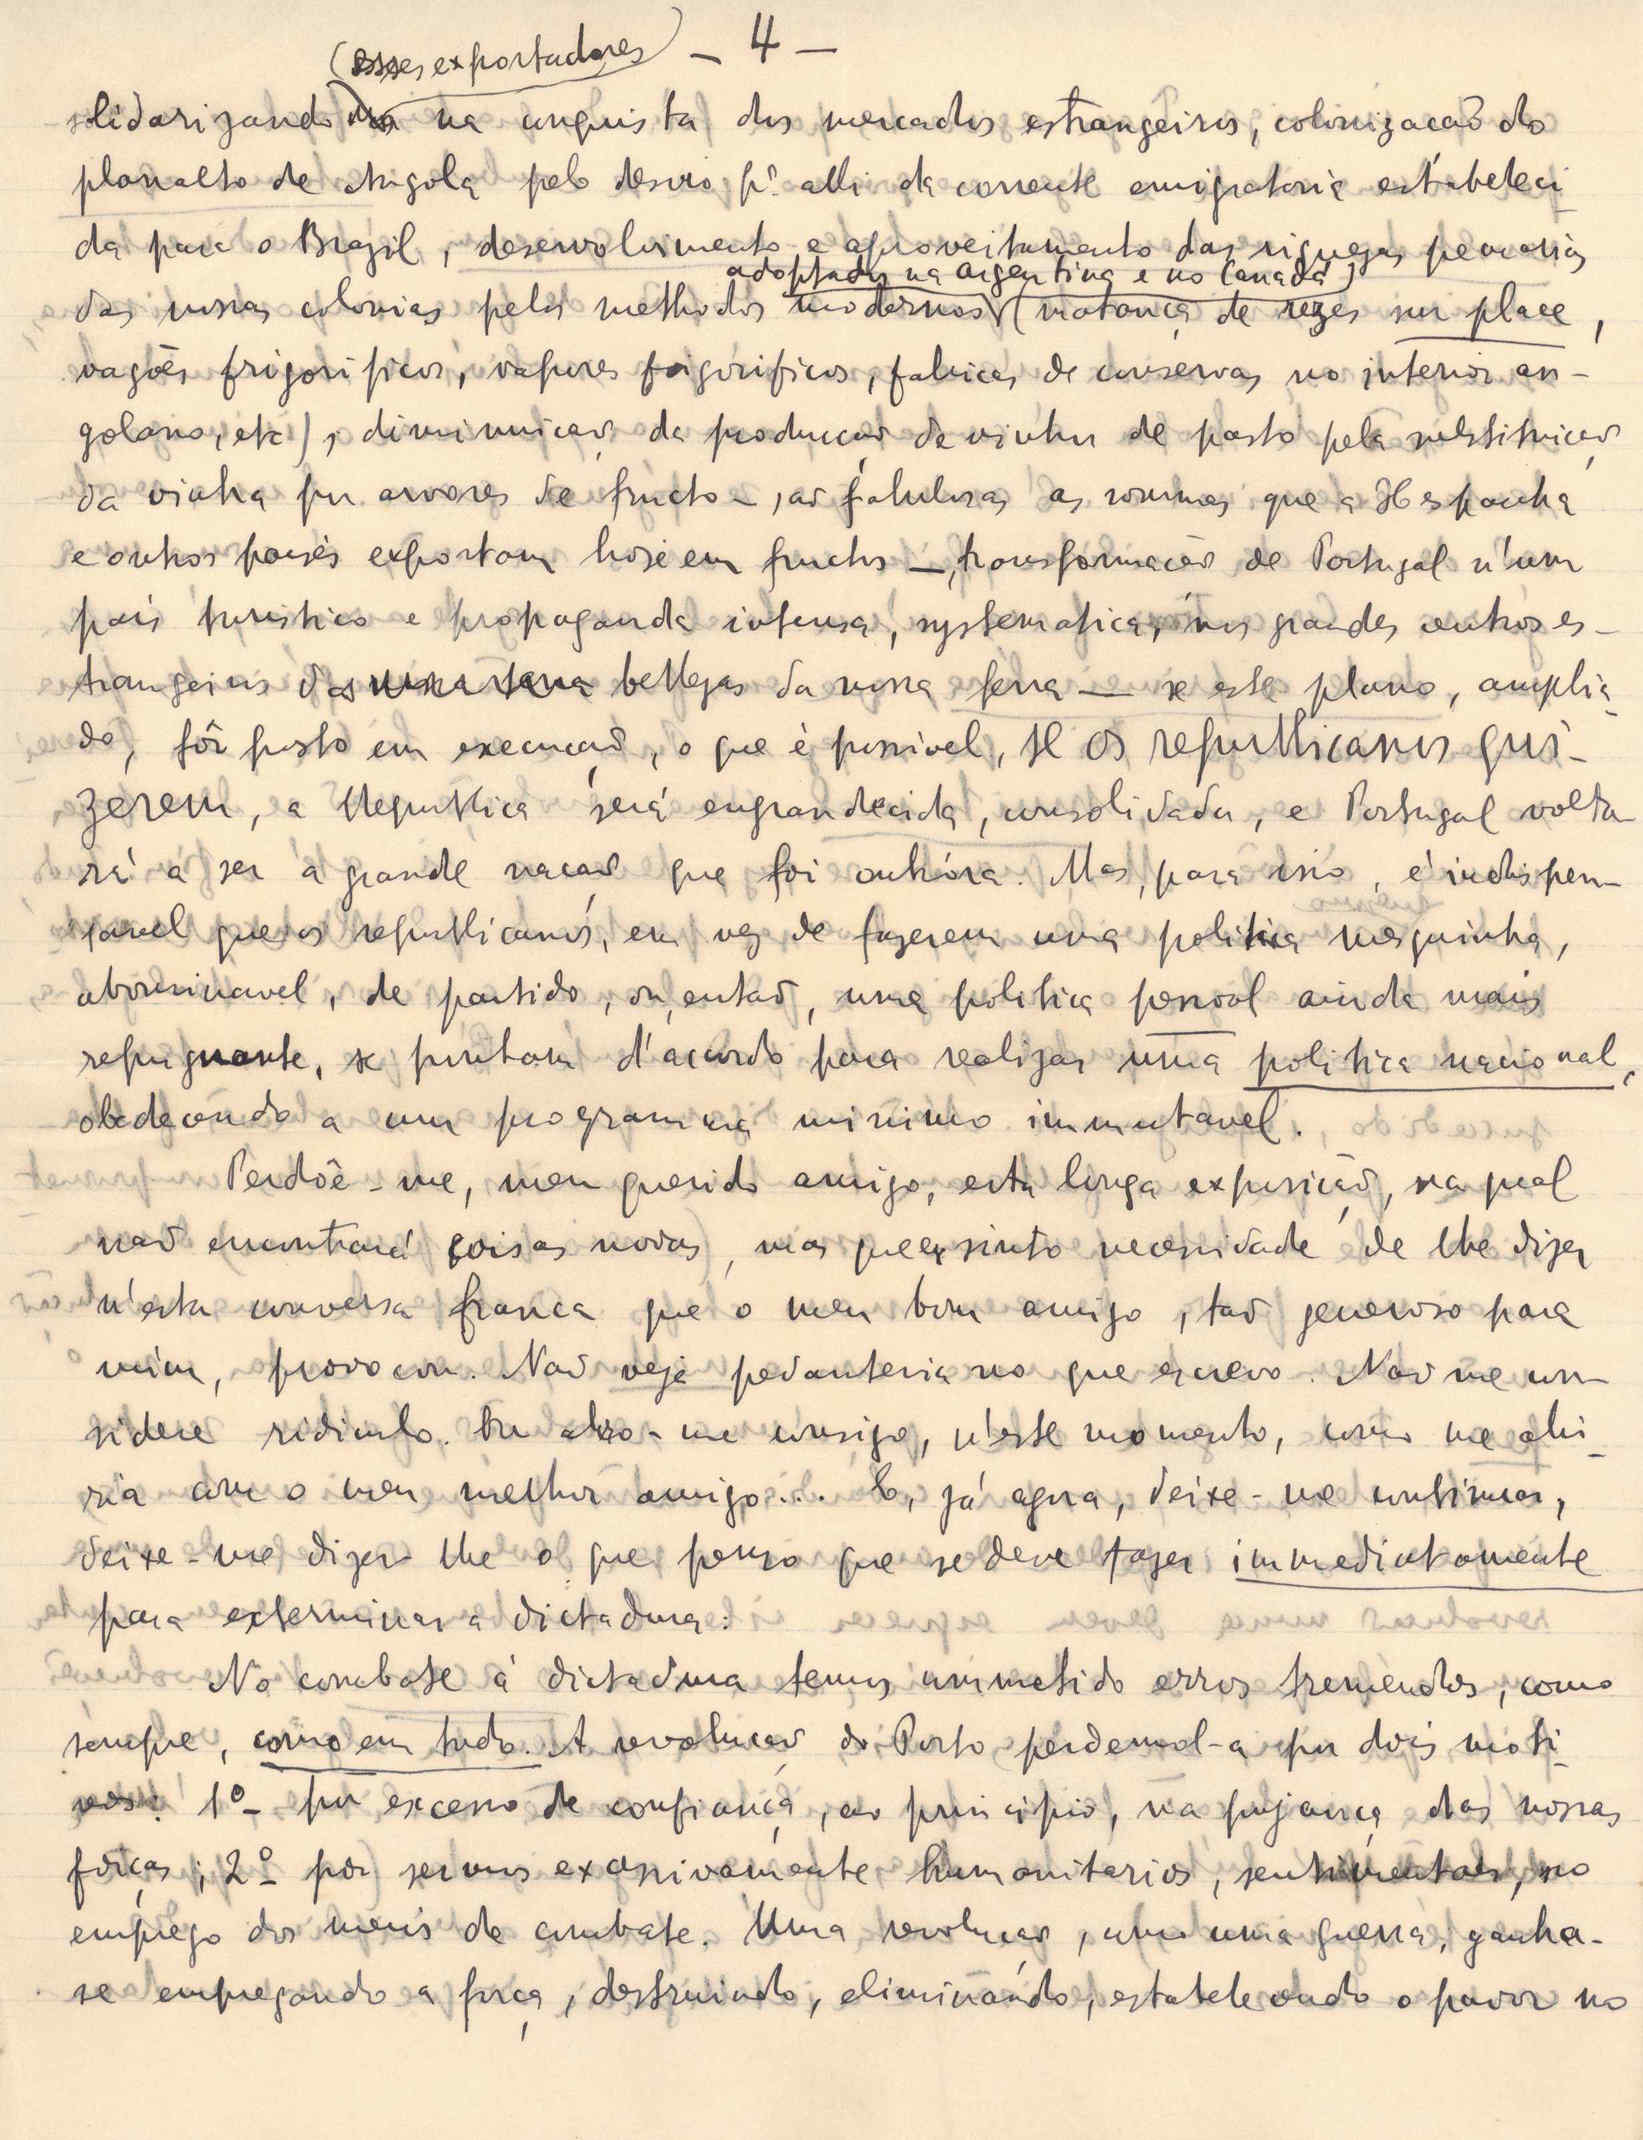 - 4 -
(esses exportadores)
solidarizando na conquista dos mercados estrangeiros, colonização do
planalto de Angola pelo desvio pª alli da corrente emigratoria estabeleci-
da para o Brazil, desenvolvimento e aproveitamento das riquezas pecuarias
adoptados na Argentina e no Canadá)
das nossas colonias pelos methodos modernos (matança de rezes sur place,
vagões frigorificos, vapores frigorificos, fabricas de conservas no interior an-
golano, etc), diminuição da producção de vinhos de pasto pela substituição
da vinha por arvores de fructo -, são fabulosas as sommas que a Hespanha
e outros paises exportam hoje em fructos -, transformação de Portugal n'um
país turistico e propaganda intensa, systematica, nos grandes centros es-
trangeiros das bellezas da nossa terra — se este plano, amplia-
do, fôr posto em execução, o que é possivel, se os republicanos qui-
zerem, a Republica será engrandecida, consolidada, e Portugal volta-
rá a ser a grande nação que foi outróra. Mas, para isso, é indispen-
savel que os republicanos, em vez de fazerem uma politica mesquinha,
abominavel, de partido, ou, então, uma politica pessoal ainda mais
repugnante, se juntem d'acordo para realizar uma politica nacional,
obedecendo a um programma minimo immutavel.
Perdôe-me, meu querido amigo, esta longa exposição, na qual
não encontrará coisas novas, mas que sinto necessidade de lhe dizer
n'esta conversa franca que o meu bom amigo, tão generoso para
mim, provocou. Não veja pedanteria no que escrevo. Não me con-
sidere ridiculo. Eu abro-me consigo, n'este momento, como me abri-
ria com o meu melhor amigo... E, já agora, deixe-me continuar,
deixe-me dizer-lhe o que penso que se deve fazer immediatamente
para exterminar a dictadura:
No combate á dictadura temos commetido erros tremendos, como
sempre, como em tudo. A revolução do Porto perdemol-a por dois moti-
vos: 1º- por excesso de confiança, ao principio, na pujança das nossas
forças; 2º- por sermos excessivamente humanitarios, sentimentaes, no
emprego dos meios de combate. Uma revolução, como uma guerra, ganha-
se empregando a força, destruindo, eliminando, estabelecendo o pavor no